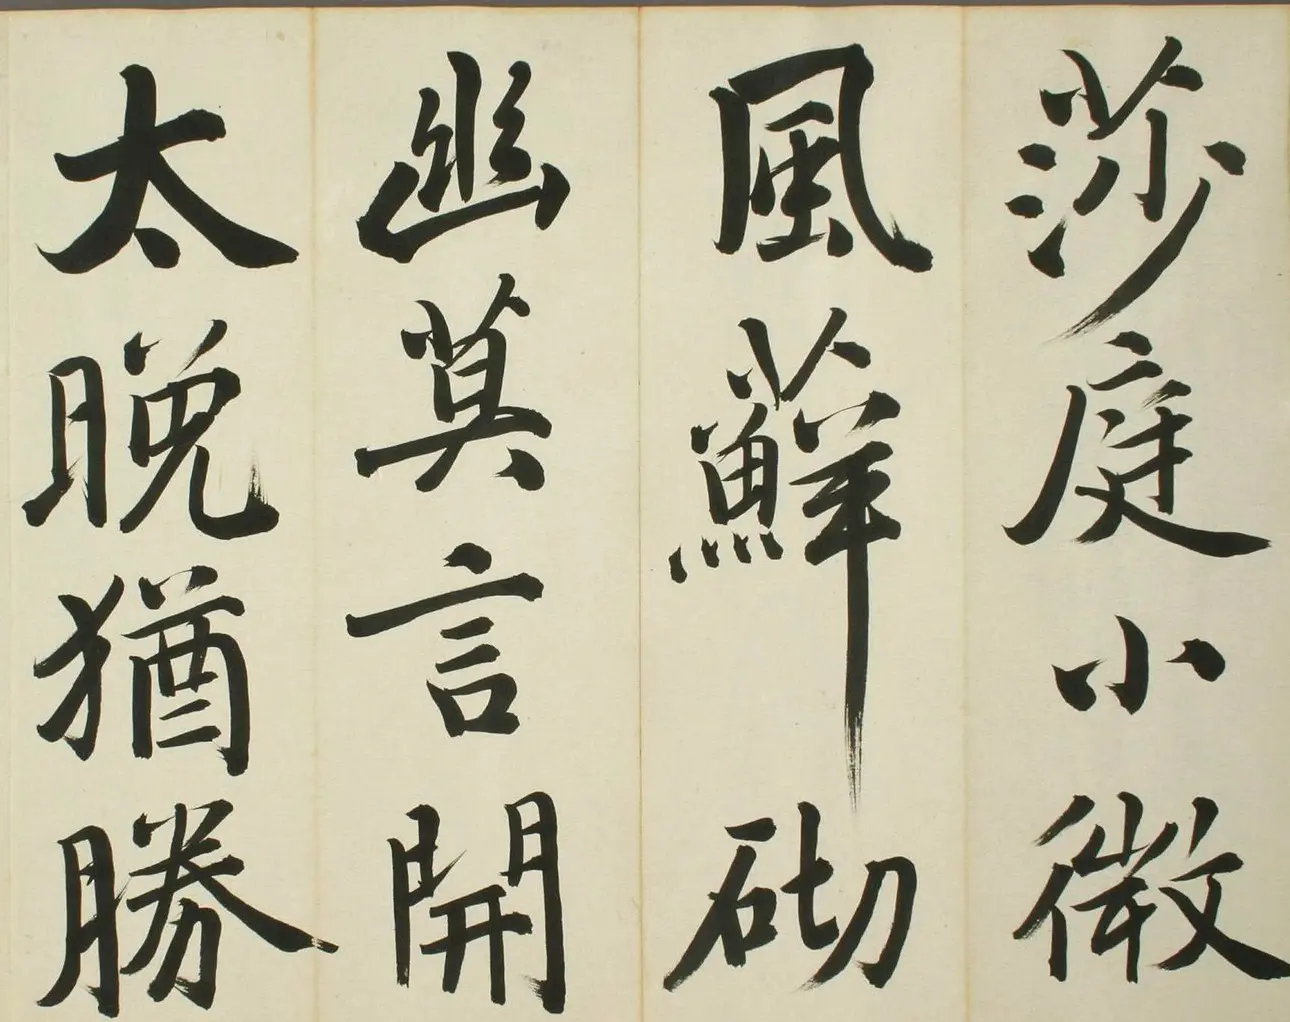 莎庭小微
風蘚砌
幽莫言開
太晚猶勝